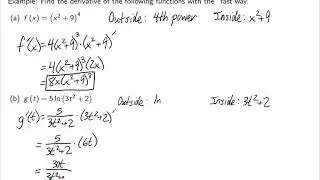 Example: Find the derivative of the following functions with the "fast way."
(a) f(x) = (x²+9)⁴ Outside: 4th power Inside: x²+9
f'(x) = 4(x²+9)³·(x²+9)'
= 4(x²+9)³(2x)
= 8x(x²+9)³
(b) g(t) = 5 ln(3t²+2) Outside: ln Inside: 3t²+2
g'(t) = 5/(3t²+2) · (3t²+2)'
= 5/(3t²+2) · (6t)
= 30t/(3t²+2